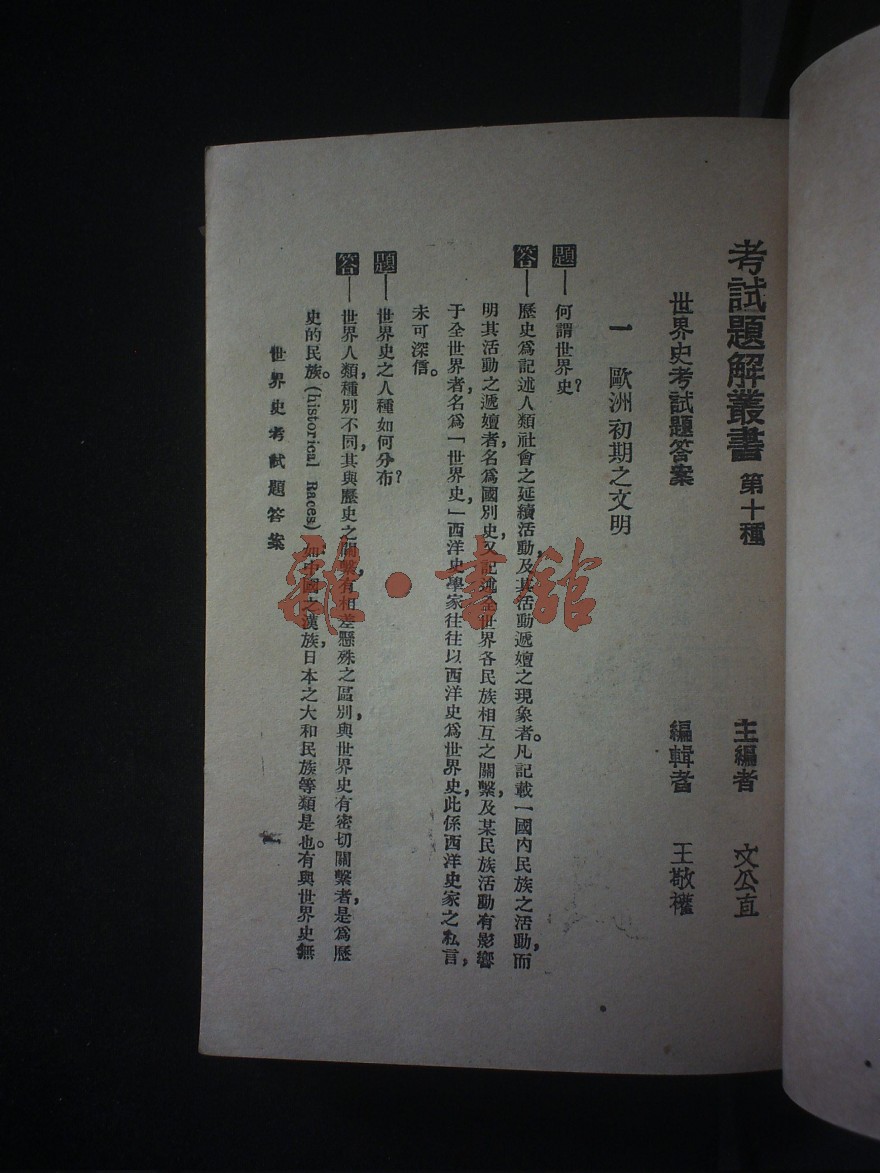 考試題解叢書 第十種
主編者 文公直
世界史考試題答案
編輯者 王敬權
一 歐洲初期之文明
題—何謂世界史？
答—歷史爲記述人類社會之延續活動，及其活動遞嬗之現象者。凡記載一國內民族之活動，而
明其活動之遞嬗者，名爲國別史，又記述全世界各民族相互之關繫，及某民族活動有影響
于全世界者，名爲「世界史」西洋史學家往往以西洋史爲世界史，此係西洋史家之私言，
未可深信。
題—世界史之人種如何分布？
答—世界人類，種別不同，其與歷史之關繫，有相差懸殊之區別，與世界史有密切關繫者，是爲歷
史的民族。(historical Races) 如中國之漢族，日本之大和民族等類是也。有與世界史無
世界史考試題答案
雜·書館